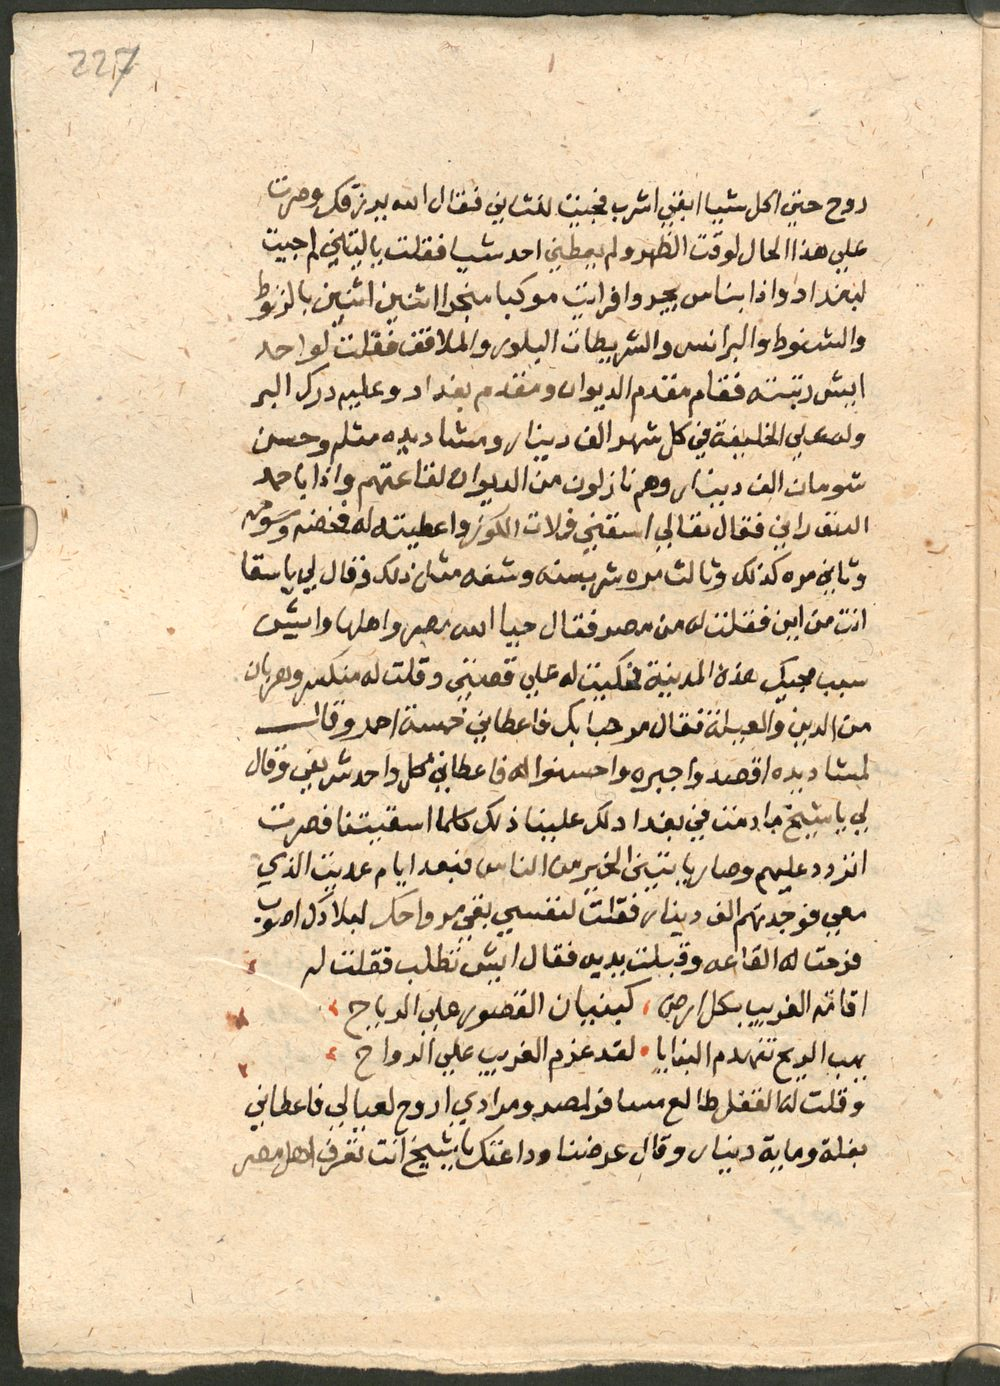 227
روح حتي اكل شيا ابقي اشرب فجيت للثاني فقال الله يرزقك وصرت
علي هذا الحال لوقت الظهر ولم يعطيني احد شيا فقلت يا ليتني لم اجيت
لبغداد واذا بناس يجروا فرايت موكبا منجرا اثنين اثنين بالزنوط
والشنوط والبرانس والشريطات البلور والملاقف فقلت لواحد
ايش رتبته فقام مقدم الديوان ومقدم بغداد وعليه درك البر
وله علي الخليفة في كل شهر الف دينار ومشاديده مثله وحسن
شومان الف دينار وهم نازلون من الديوان لقاعتهم واذا باحمد
الدنف راني فقال تعالي اسقني فملات الكوز واعطيته له فخضه
وثاني مره كذلك وثالث مره شرب منه وشفه مثل ذلك وقال لي يا سقا
انت من اين فقلت له من مصر فقال حيا الله مصر واهلها وايش
سبب مجيك هذه المدينة فحكيت له علي قصتي وقلت له منكسر وهربان
من الدين والعيلة فقال مرحبا بك فاعطاني خمسة احمر وقال
لمشاديده اقصدوا جبره واحسنوا له فاعطاني كل واحد شريفي وقال
لي يا شيخ ما دمت في بغداد لك علينا ذلك كلما اسقيتنا فصرت
اتردد عليهم وصار ياتيني الخير من الناس فبعد ايام عديت الذي
معي فوجدتهم الف دينار فقلت لنفسي بقي مرواحك لبلادك اصوب
فرحت له القاعه وقبلت يديه فقال ايش تطلب فقلت له
اقامة الغريب بكل ارض، كبنيان القصور علي الرياح
يهب الريح تنهدم البنايا، لقد عزم الغريب علي الرواح
وقلت له القفل طالع مسافر لمصر ومرادي اروح لعيالي فاعطاني
بغلة وماية دينار وقال غرضنا وداعتك يا شيخ انت تعرف اهل مصر